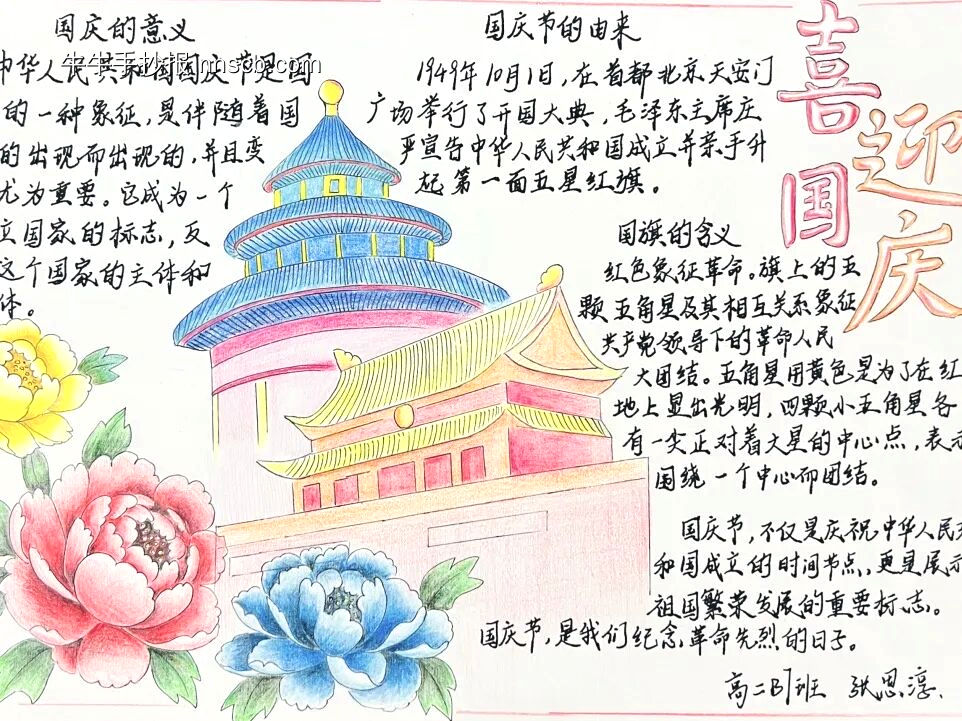 喜迎国庆
国庆的意义
牛牛手抄报nnscb.com
中华人民共和国国庆节是国
的一种象征，是伴随着国
的出现而出现的，并且变
尤为重要。它成为一个
立国家的标志，反
这个国家的主体和
体。
国庆节的由来
1949年10月1日，在首都北京天安门
广场举行了开国大典，毛泽东主席庄
严宣告中华人民共和国成立并亲手升
起第一面五星红旗。
国旗的含义
红色象征革命。旗上的五
颗五角星及其相互关系象征
共产党领导下的革命人民
大团结。五角星用黄色是为了在红
地上显出光明，四颗小五角星各
有一尖正对着大星的中心点，表示
围绕一个中心而团结。
国庆节，不仅是庆祝中华人民共
和国成立的时间节点，更是展示
祖国繁荣发展的重要标志。
国庆节，是我们纪念革命先烈的日子。
高二 班 张思淳.